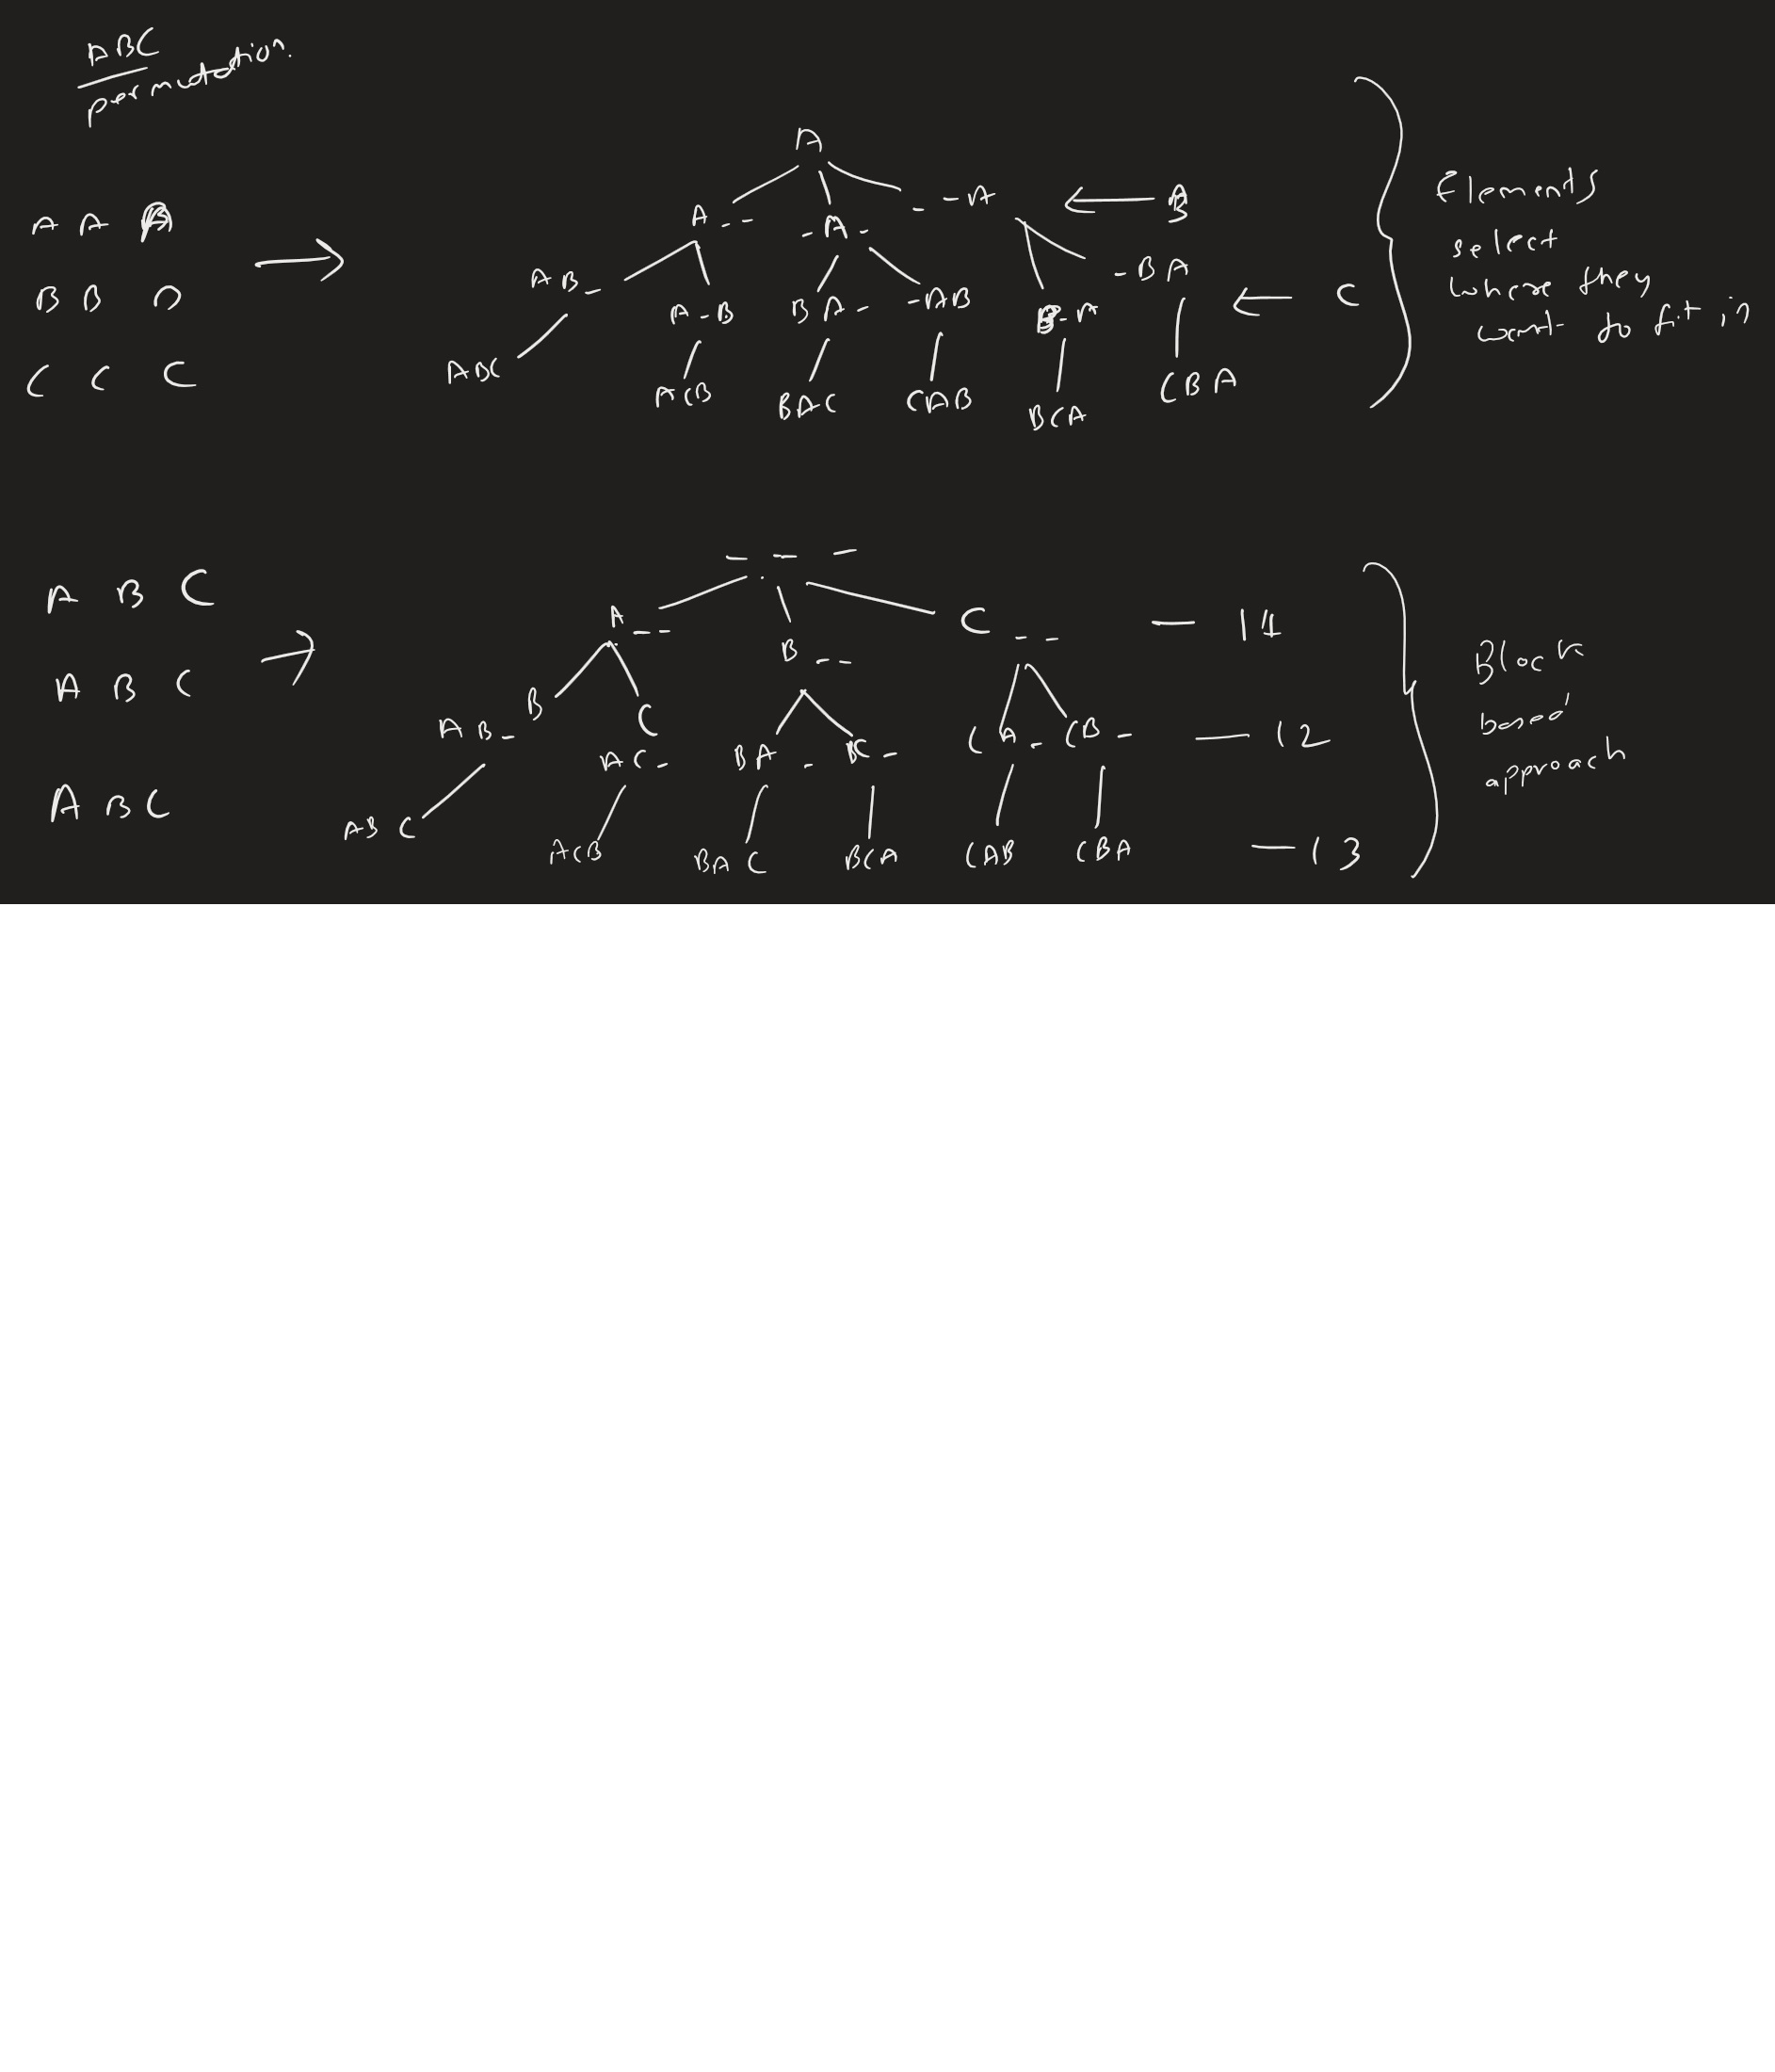 ABC
permutation.
A
A - -
- A -
- - A
B
A A
B B
C C C
AB -
A - B
BA -
- AB
B - A
- BA
C
ABC
ACB
BAC
CAB
BCA
CBA
Elements
select
where they
want to fit in
- - -
A B C
A - -
B - -
C - -
A B C
B
C
AB -
AC -
BA -
BC -
CA -
CB -
- l2
A B C
ABC
ACB
BAC
BCA
CAB
CBA
- l3
Block
based
approach